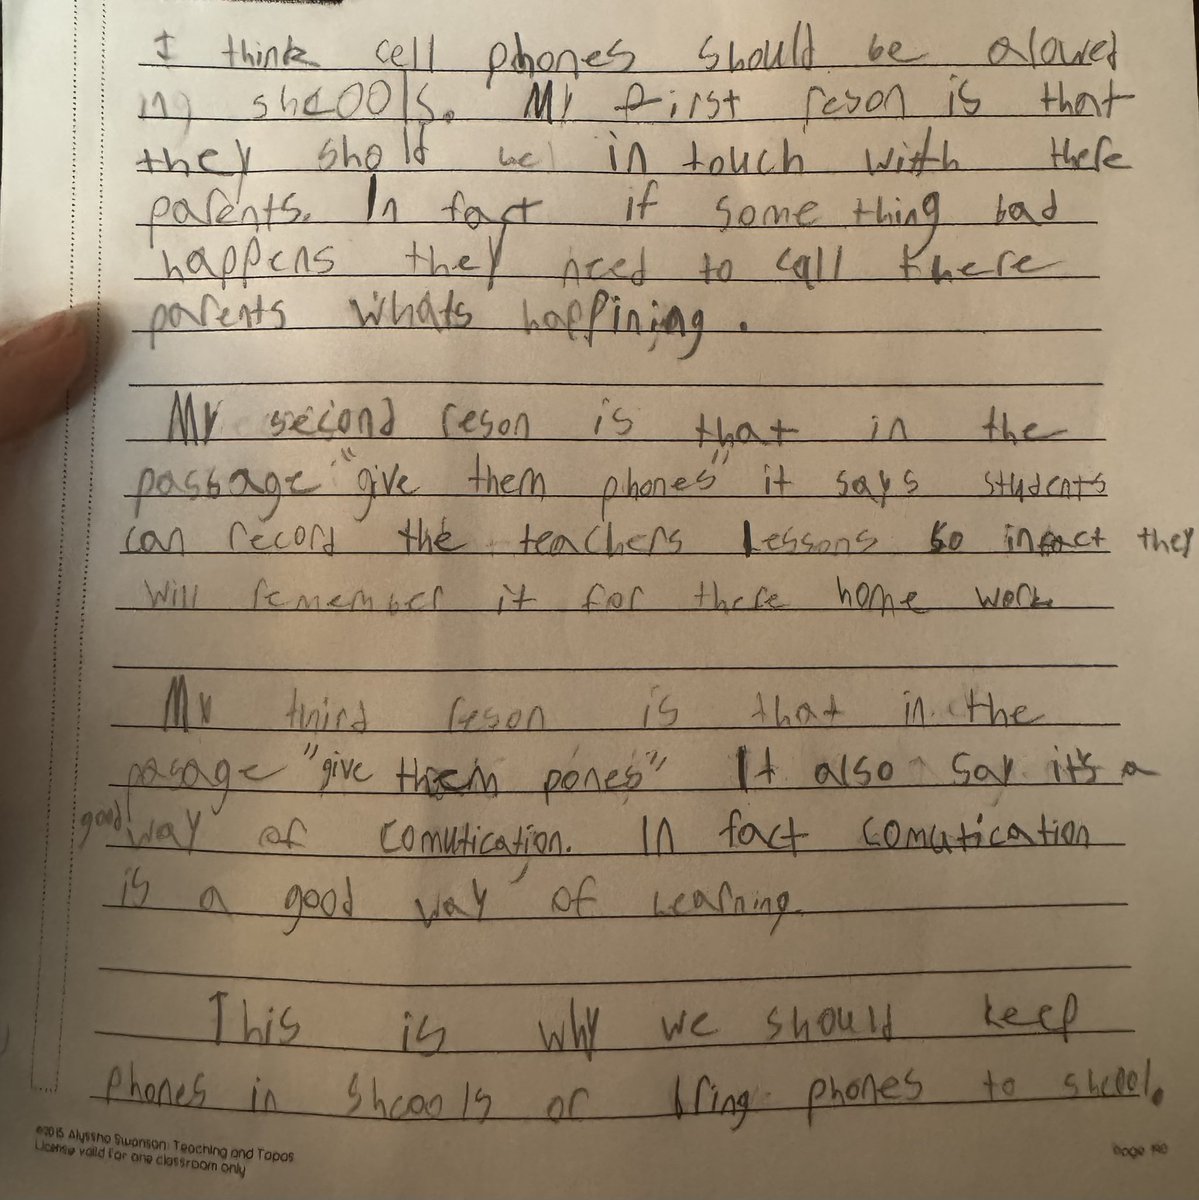 I think cell phones should be alowed
ing shcools. My first reson is that
they shold be in touch with there
parents. In fact if some thing bad
happens they need to call there
parents whats happining.
My second reson is that in the
passage "give them phones" it says students
can record the teachers lessons so infact they
will remember it for there home work
My third reson is that in the
pasage "give them pones" It also say it's a
good way of comutication. In fact comutication
is a good way of learning.
This is why we should keep
phones in shcools or bring phones to shcool.
©2015 Alyssha Swanson: Teaching and Tapas
License valid for one classroom only
page 190